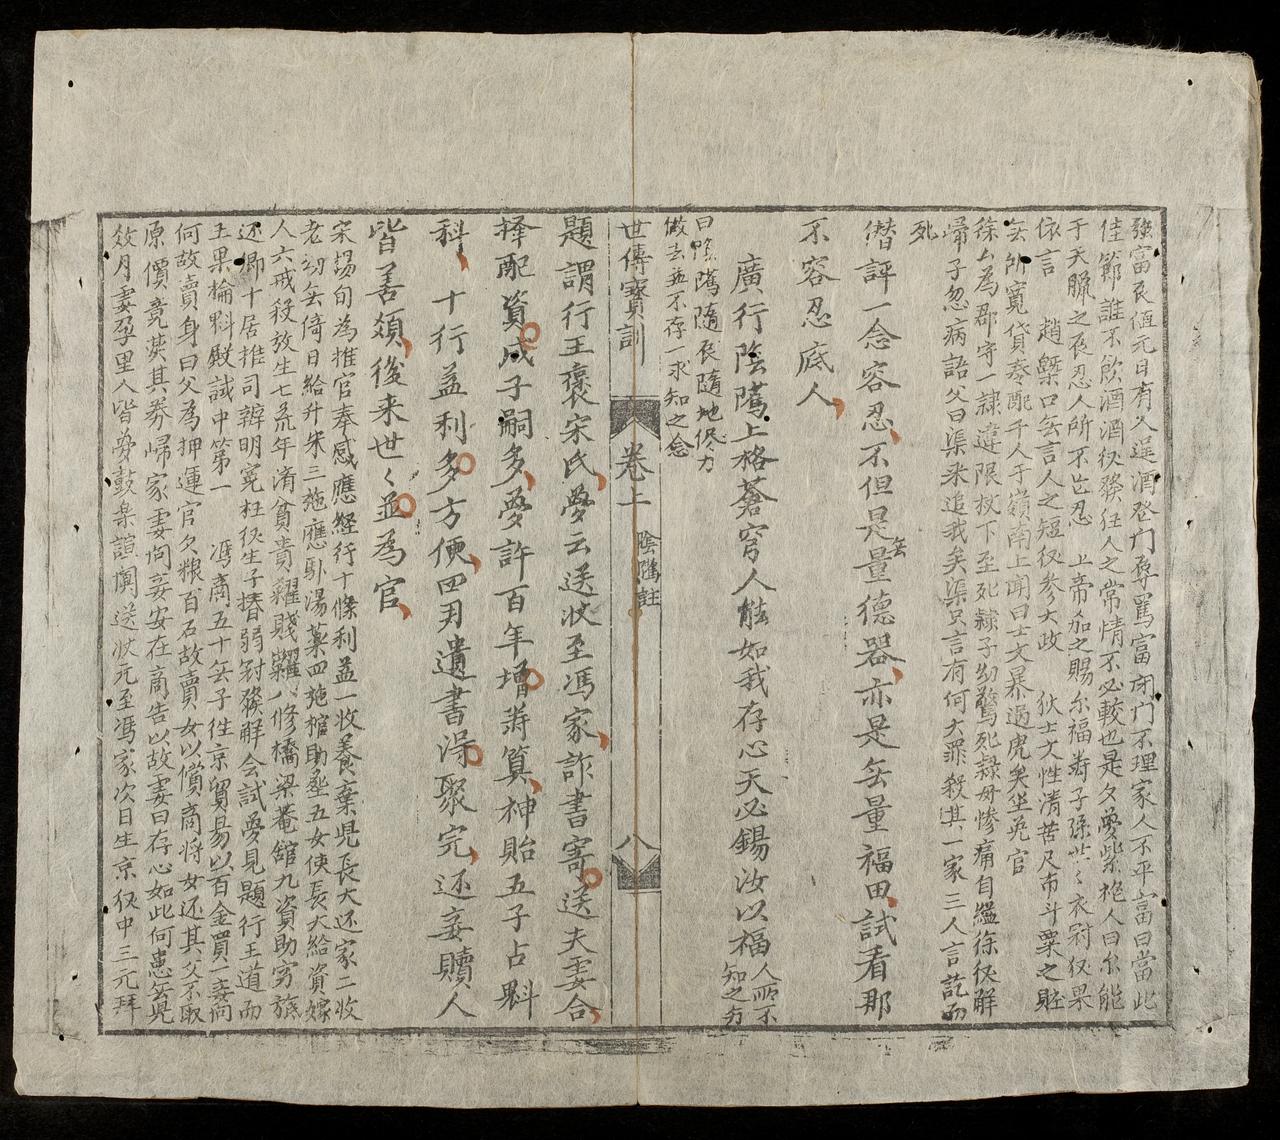 強富民值元日有久逞酒登門辱罵富閉門不理家人不平富曰當此
佳節誰不飲酒酒後發狂人之常情不必較也是夕夢紫袍人曰尔能
于天臘之辰忍人所不忍 上帝加之賜尔福壽子孫世〻衣冠後果
依言 趙槩口無言人之短後參大政 狄士文性清苦尺布斗粟之賍
無所寬貸奏配千人于嶺南上聞曰士文暴過虎矣坐免官
徐厶為郡守一隷違限杖下至死隷子幼驚死隷母慘痛自縊徐後觧
帰子忽病語父曰渠来追我矣渠只言有何大罪殺其一家三人言訖而
死
僣評一念容忍不但是無量德器亦是無量福田試看那
不容忍底人
廣行陰隲上格蒼穹人能如我存心天必錫汝以福 人所不知之方
曰陰隲隨辰隨地侭力
做去並不存一求知之念
世傳寳訓 卷上 陰隲註 八
題謂行王褒宋氏夢云送状至馮家詐書寄送夫妻合
擇配資成子嗣多夢許百年增壽算神貽五子占魁
科十行益利多方便四刄遺書淂聚完还妾贖人
皆善須後来世〻並為官
宋場旬為推官奉感應経行十條利益一收養棄児長大还家二收
老幼無倚日給升米三施應卧湯藥四施棺助塟五女使長大給資嫁
人六戒殺放生七荒年済貧貴糴賤糶八修橋梁菴舘九資助穷旅
还鄉十居推司辨明寃枉後生子揩弱冠發觧会試夢見題行王道而
王果掄魁殿試中第一 馮商五十無子徃京貿昜以百金買一妾问
何故賣身曰父為押運官欠粮百石故賣女以償商將女还其父不取
原價竟焚其券帰家妻问妾安在商告以故妻曰存心如此何患無児
效月妻孕里人皆夢鼓楽諠闐送状元至馮家次日生京後中三元拜